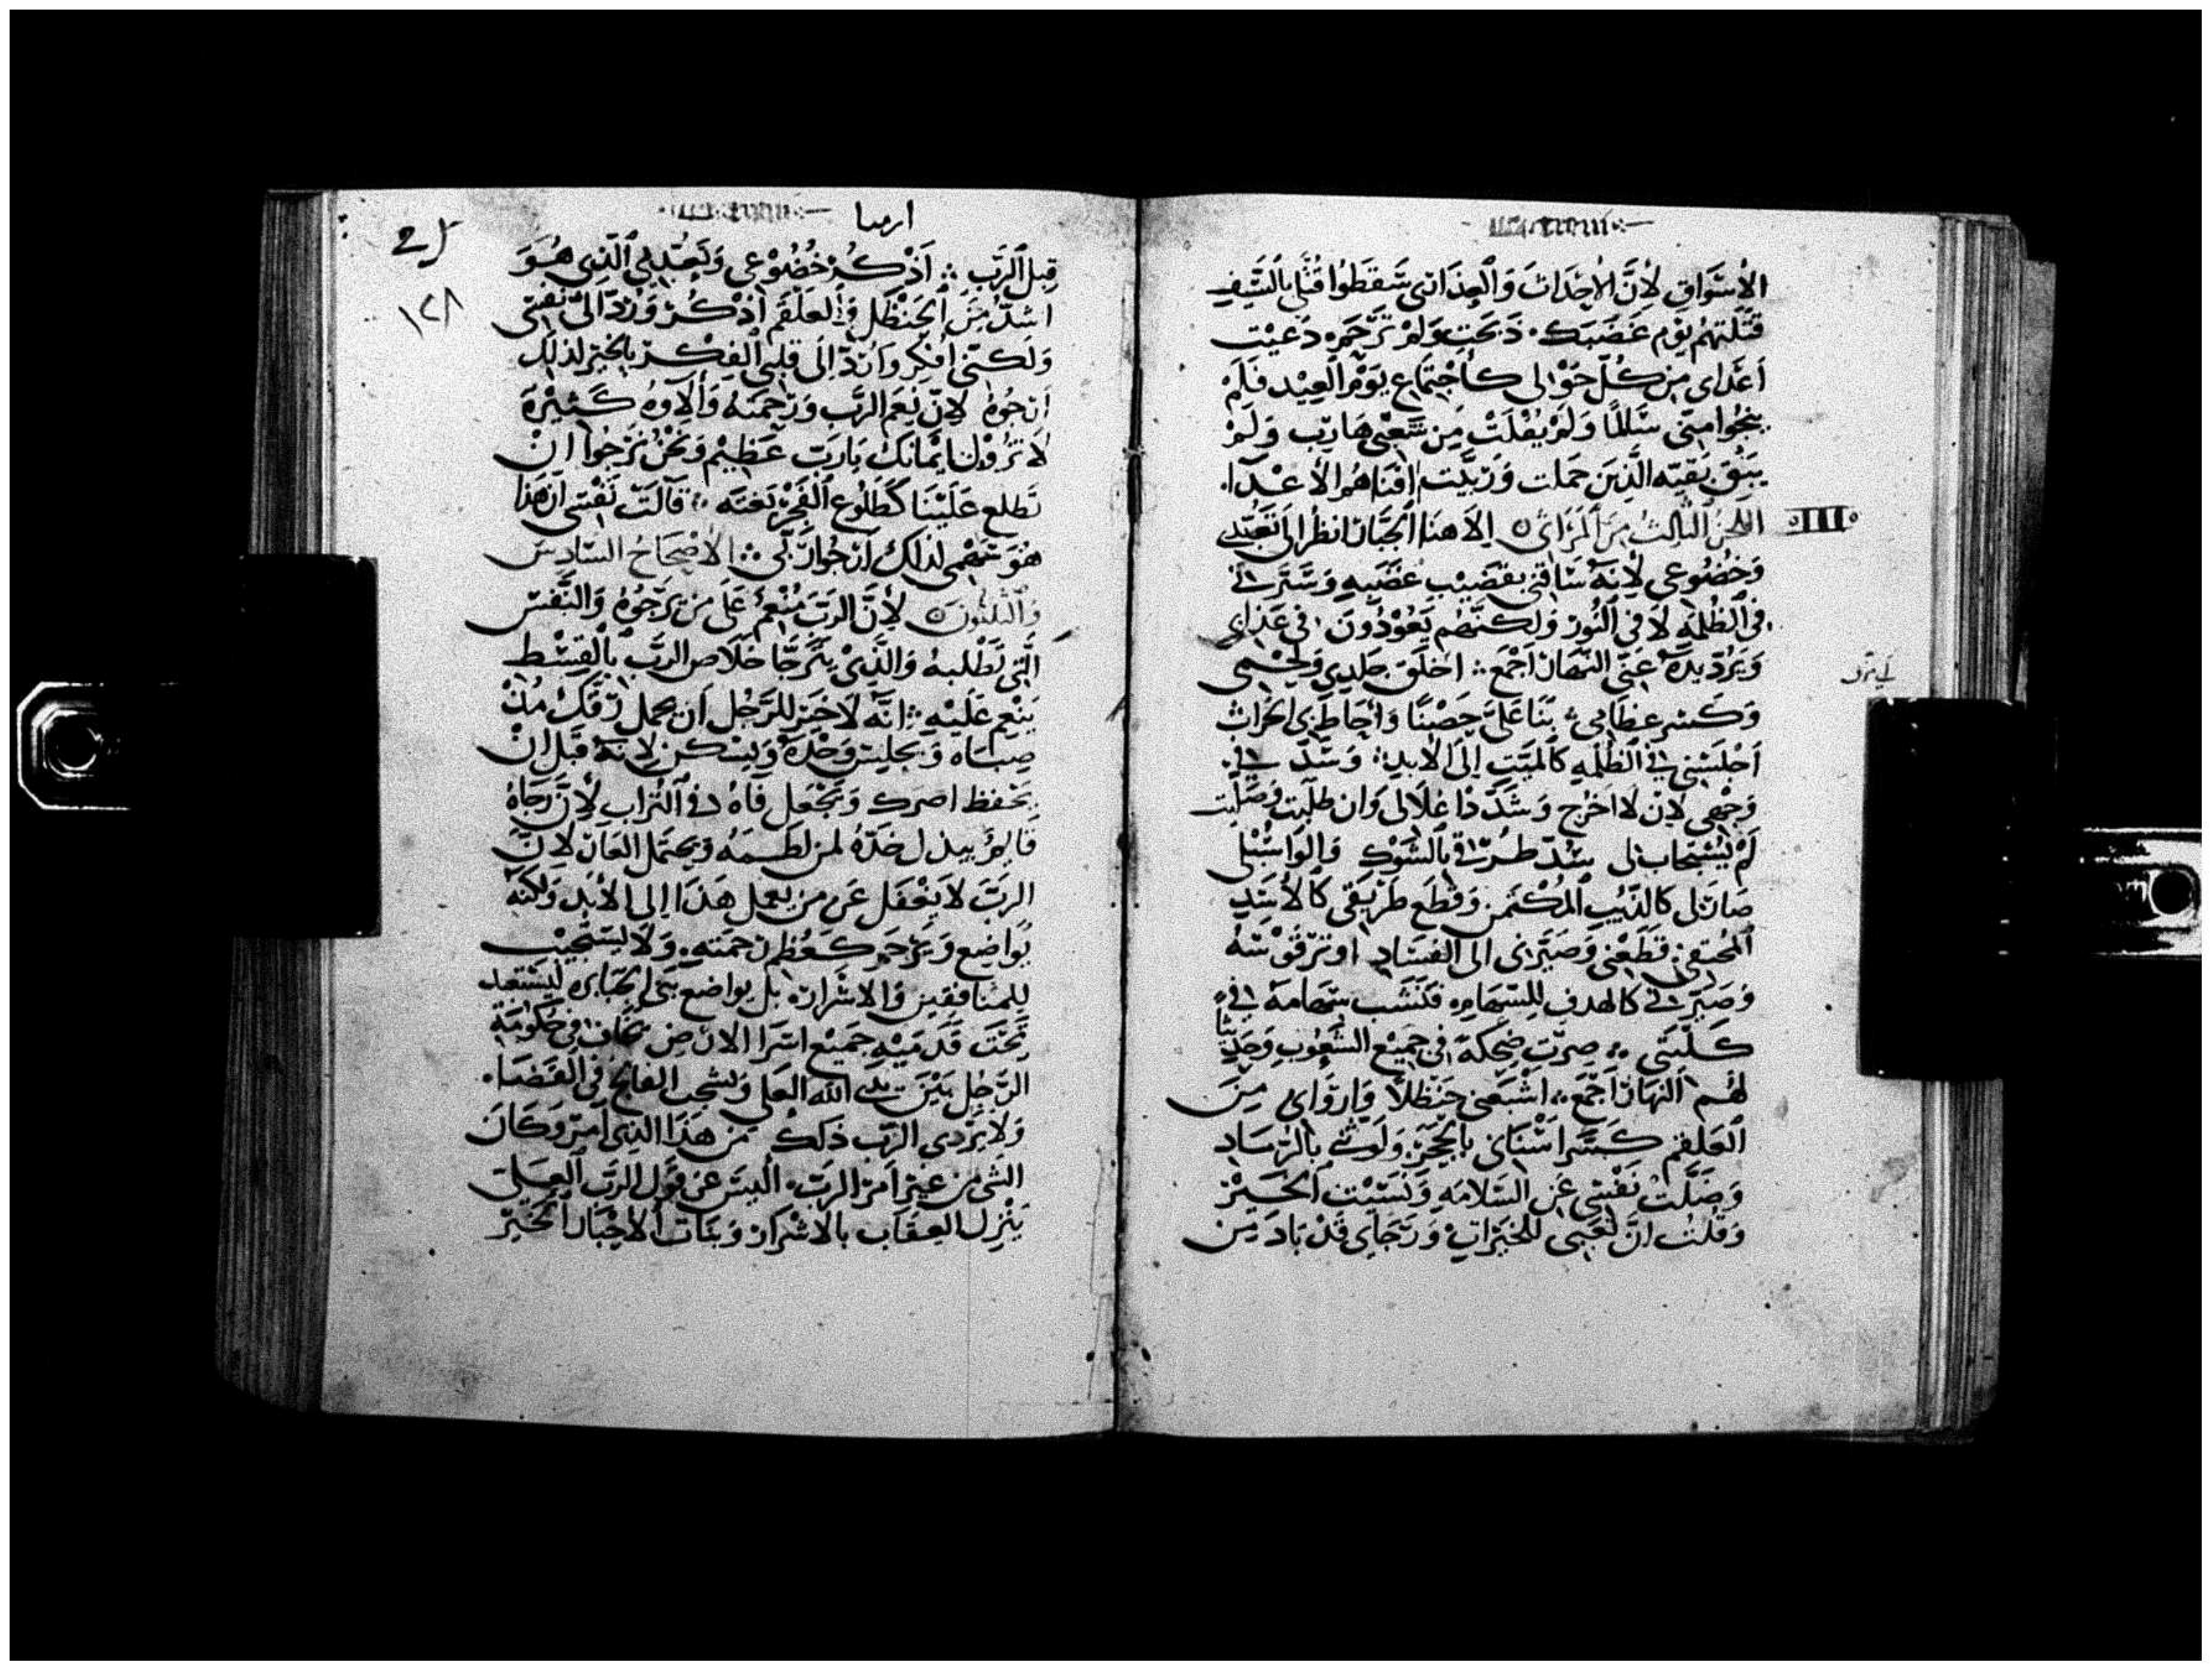 الأسواق لأنَّ الأحداث وَالعذارى سَقطَوُا قُتلى بالسَّيفِ
قتَلتهُم يوْم غَضَبَك. ذبَحَت وَلمْ تَرَّحَم. دَعَيْت
أعَداى مِن كُلّ حَوْالى كأجْتَماع يوَمْ العِيْد فَلمْ
ينجُوا مِنّى سَاللمًا وَلمَ يُفْلتْ مِن سَعْبى هَارب وَلمَ
يبَقَ بَقيَه الَّذينَ حَملت وَرَبيَّت افنَاهُم الاعْدَآء
اللحن الثالثُ مِنَ المرَاثى ه الاهنَا الجبَّار انظرُ الى تَعَبّدى
وَخضُوعى لأنهُ سَاقنى بقضَيْب غَضَبهِ وَسَتَرَنى
فى الظُلمَه لاَ فى النُورْ وَلكنَّهُم يَعُوْدُوَن فى عَذابى
وَيَرُدّ يدَهْ عَنى النهَار اجْمَع ؞ اخلَق جَلدِى وَلحْمى
وَكسَر عظامى ؞ بنَا عَلىَّ حِصْنًا وَاحَاط بى الحراث
اجْلسَنى فى الظُلمَه كالميَّت الى الابدِ ؞ وَسَدّ فى
وَجْهى لأن لا اخرُج وَشدَّد اغلاَلى وَان طلَبت وَصَلّيت
لمْ يُسْتجاب لى سَدّ طُرُقى بالشَوْكِ وَالوَاسُبْلى
صَار لى كالدَّبيب المُكْتمَن وَقطَع طَريقى كالأسَدِ
المُختفى قطَعْنى وَصَيَّرَنى الى الفسَادِ اوْترَ قوْسَهُ
وَصَيَّرَنى كالهدفِ للسّهَامِ. فنَشَب سِهَامَهُ فى
كلْيتَى ؞ صِرتُ ضِحكَة فى جَميْع الشُعُوبِ وَحَديثًا
لهُم النهَار اجْمَع ؞ اشْبعَنى حَنْظلاً وَارَوانى مِنَ
العَلقم كسَّر اسْنَانى بالحجَرْ. وَلوَثنى بالرّمَاد
وَضَلَّت نَفْسى عَن السَلامَه وَنَسَيْت الخَيرْ
وَقلتُ انَّ تعَبى للخيَرات وَرَجَاى قدْ بَادَ مِن
ارميا
١٢٨
قِبل الرَّب ؞ اَذْكُر خُضُوْعى وَتعَبُّدى الَّذِى هُوَ
اشدُّ مِنَ الحَنْظَل وَالعَلقَم اذْكُر وَرُدّ الىّ نَفْسى
وَلكنّى افكر وَارُدّ الَى قلبى الفكر بالخير لذلك
ارجُوهُ لانّ نعَم الرَّب وَرَحمتَهُ وَألاوهُ كثيرَة
لاَ تزُوْل ايمَانكَ يَارَبّ عَظِيم وَنحْنُ نَرْجُوا انْ
تَطلع عَليْنَا كَطلُوع الْفَجْر بَغتَه ؞ قالَت نَفْسى ان هَذا
هُوَ سَهْمى لذلك ارجُوا رَبّى ؞ الاصْحَاحُ السَّادِس
وَالثلثون ه لأنَّ الرَّبَ مُنْعِمٌ عَلَى مَن يَرْجُوُهُ وَالنَّفْس
الَّتى تَطْلبهُ وَالذَّىْ يَترَجَّا خَلاَص الرَّب بالْقسْط
يَنْعِم عَلَيْهِ ؞ انَّه لاَ خَيَر للرَّجُل أن يحمل رقك مُنْذ
صِبَاه وَيجليسَ وَحْدَهُ وَيَسْكن لانَهُ قبَل انْ
يَحفظ امرَك وَيَجْعَل فَاهُ فى التُّرَاب لأنَّ رجَاهُ
قَايم يبذل خَدّهُ لمن لطَمهُ وَيحتَمل العَار لانَّ
الرَبّ لاَ يَغْفَل عَن مَن يعمل هَذا الى الأبَد وَلكنه
يُواضِع وَيَرْحَم كعُظم رَحمَتهِ. وَلاَ يسَتجيْب
للمنَافقين وَالاشْرَار. بل يواضع بَنى الجبَابره ليسَتعبد
تَحْتَ قَدَميْهِ جَميْع اسرَا الارْض يحَاف فى حكُومَة
الرّجُل بَيْنَ يَدى الله العلى وَيشجب الفالج فى القَضَآء
وَلا يَرْدى الرَّب ذلك مَن هَذا الذِى امرْ وَكَانَ
الشى مَن غير امَر الرَبّ. اليسَ عَن قول الرَبّ العَلى
يَنْزل العِقاب بالاشْرار وَبنَات الاحْبَار الخيْر